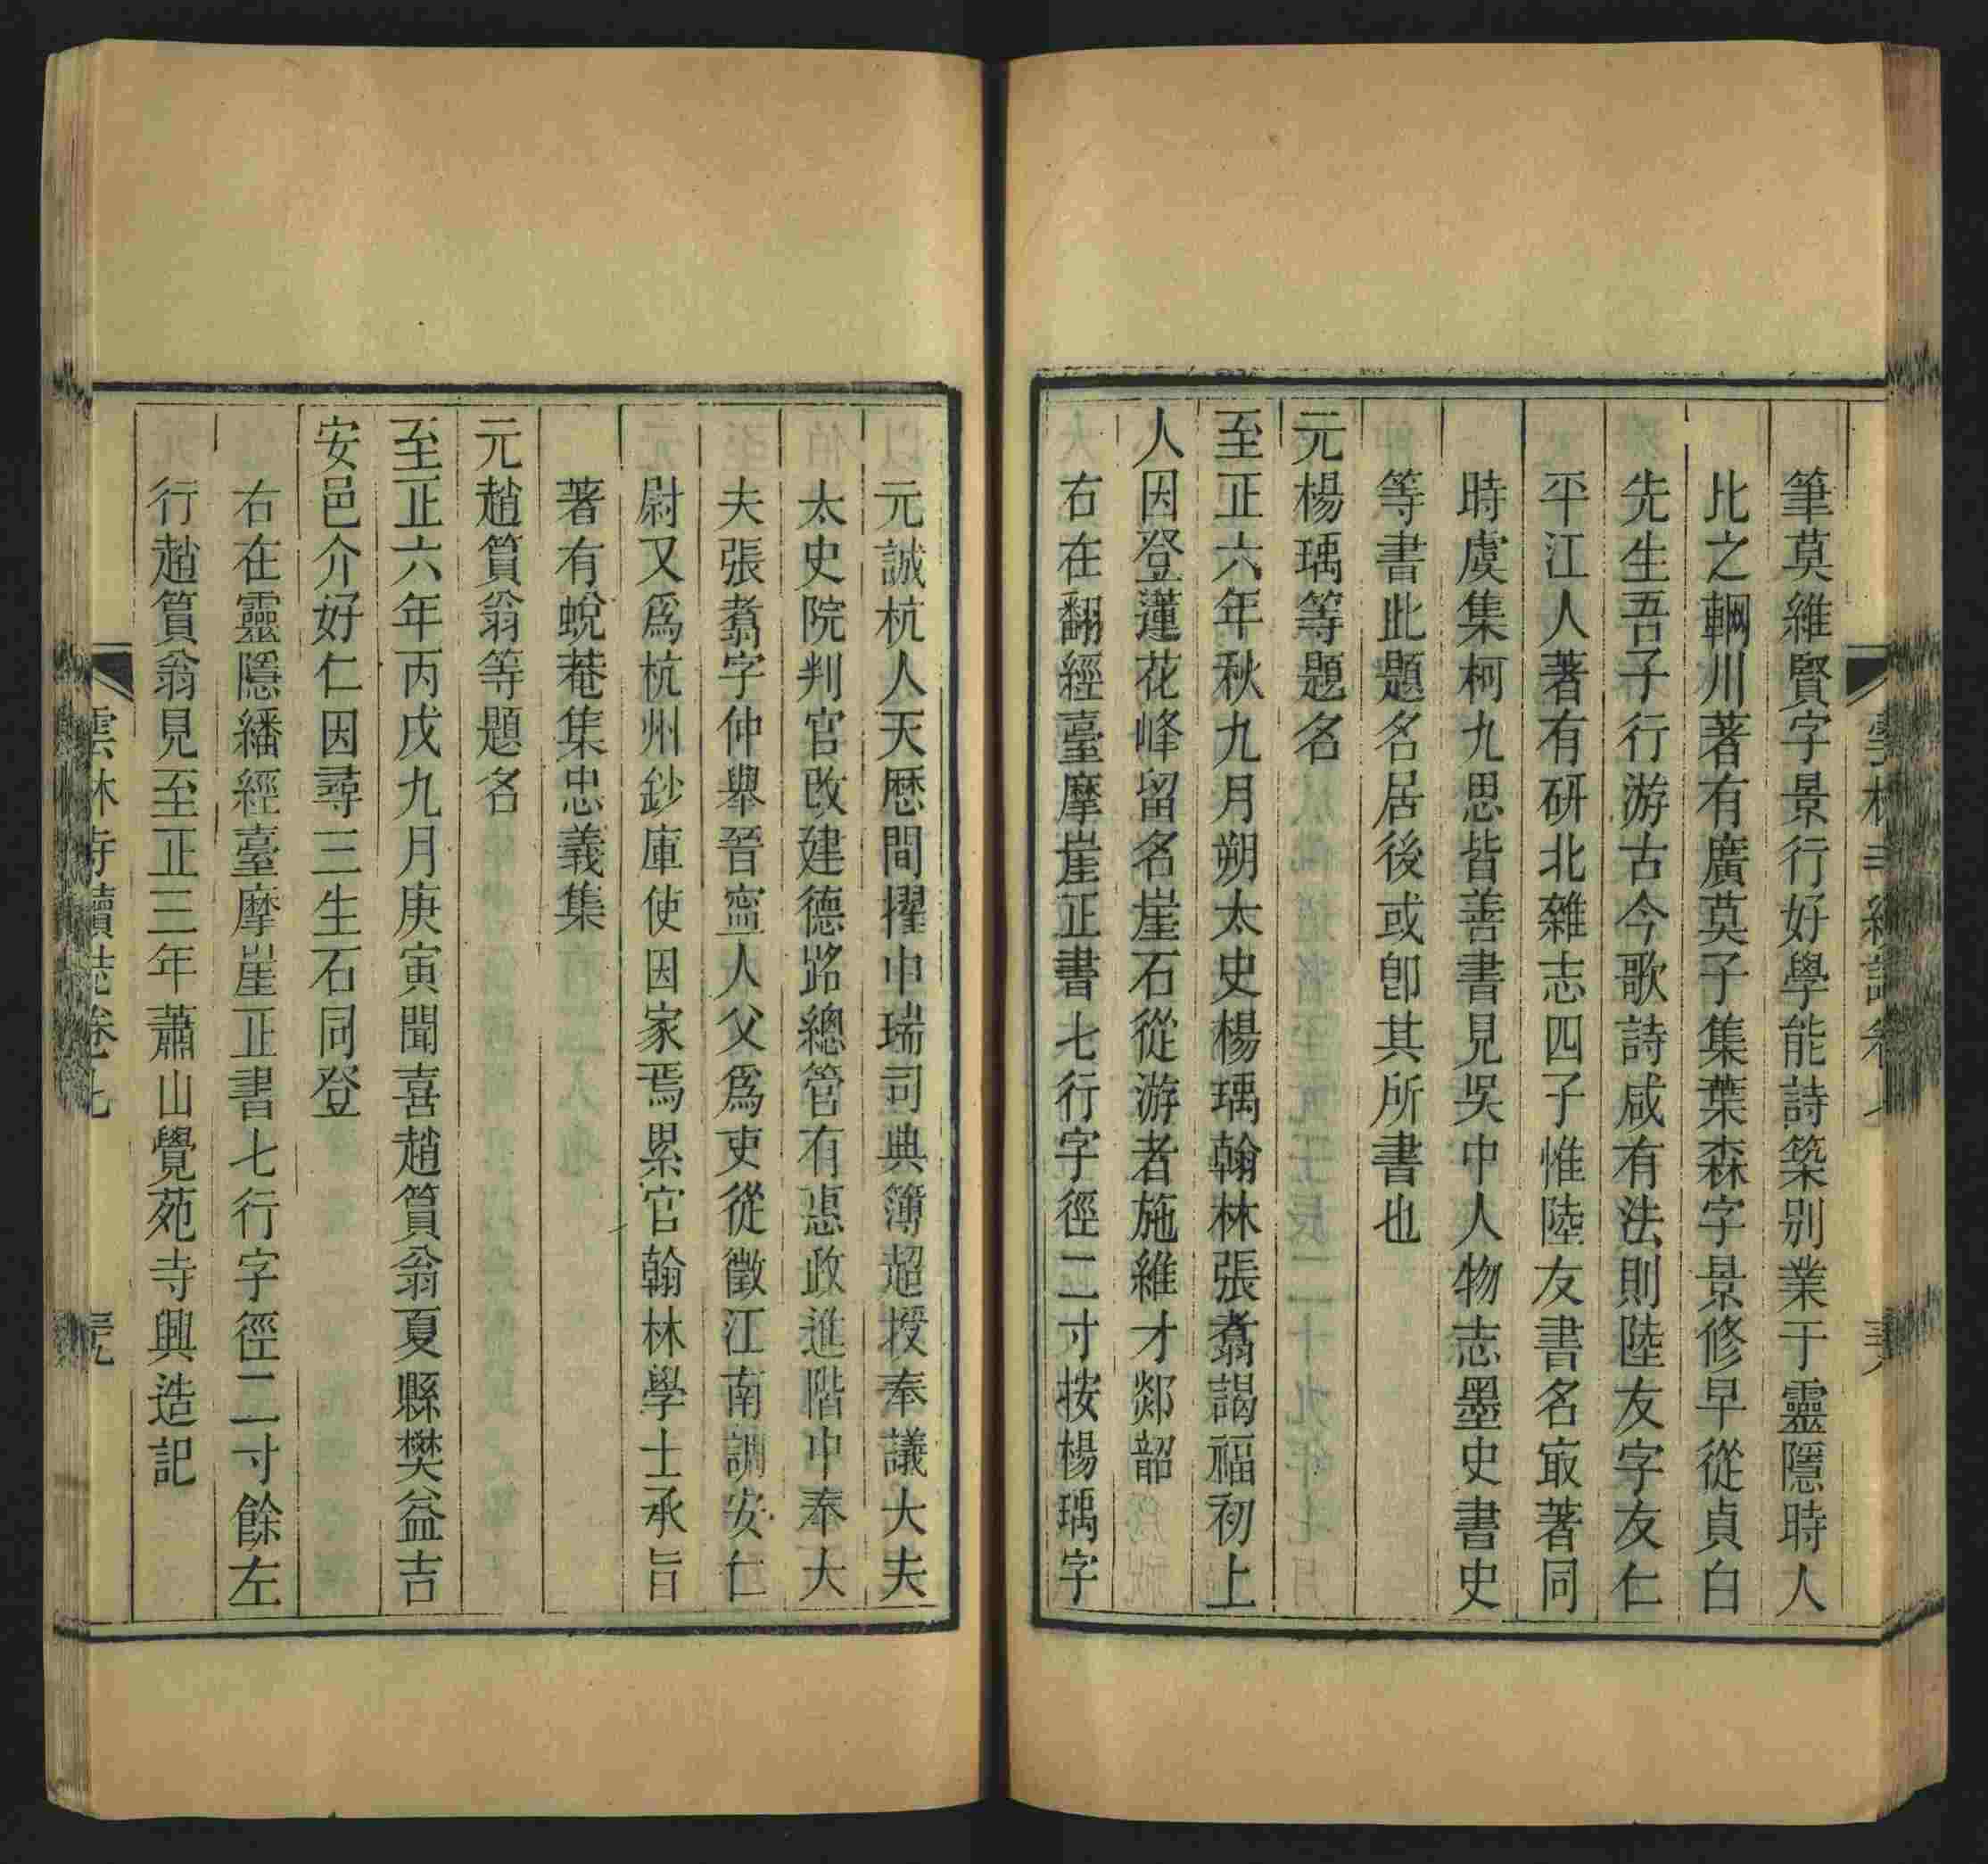 筆莫維賢字景行好學能詩築別業于靈隱時人
比之輞川著有廣莫子集葉森字景修早從貞白
先生吾子行游古今歌詩咸有法則陸友字友仁
平江人著有研北雜志四子惟陸友書名㝡著同
時虞集柯九思皆善書見吳中人物志墨史書史
等書此題名居後或卽其所書也
元楊瑀等題名
至正六年秋九月朔太史楊瑀翰林張翥謁福初上
人因登蓮花峰留名崖石從游者施維才郯韶
右在翻經臺摩崖正書七行字徑二寸按楊瑀字
元誠杭人天厯間擢中瑞司典簿超授奉議大夫
太史院判官改建德路總管有惪政進階中奉大
夫張翥字仲舉晉寍人父爲吏從徵江南調安仁
尉又爲杭州鈔庫使因家焉累官翰林學士承旨
著有蛻菴集忠義集
元趙篔翁等題名
至正六年丙戌九月庚寅聞喜趙篔翁夏縣樊益吉
安邑介好仁因尋三生石同登
右在靈隱繙經臺摩崖正書七行字徑二寸餘左
行趙篔翁見至正三年蕭山覺苑寺興造記
雲林寺續誌卷七